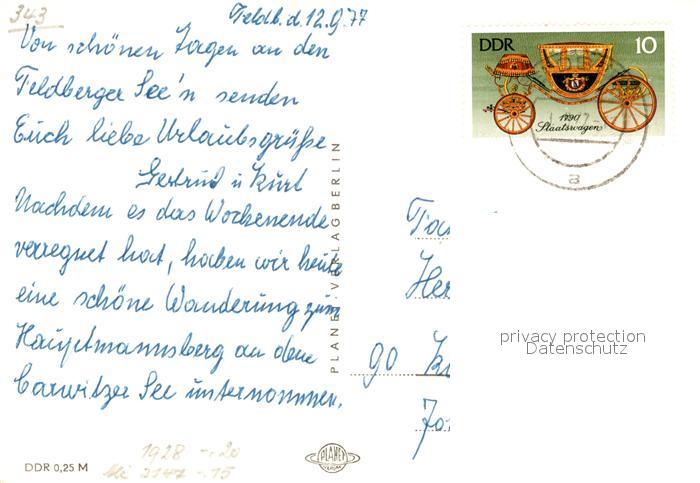 343
Feldb. d. 12.9.77
Von schönen Tagen an den
Feldberger See'n senden
Euch liebe Urlaubsgrüße
Gertrud u Kurt
Nachdem es das Wochenende
verregnet hat, haben wir heute
eine schöne Wanderung zum
Hauptmannsberg an dem
Carwitzer See unternommen.
DDR 0,25 M
1928 -.20
Mi 2147 -.15
PLANET-VERLAG BERLIN
PLANET
VERLAG
DDR
10
1790
Staatswagen
a
90
privacy protection
Datenschutz